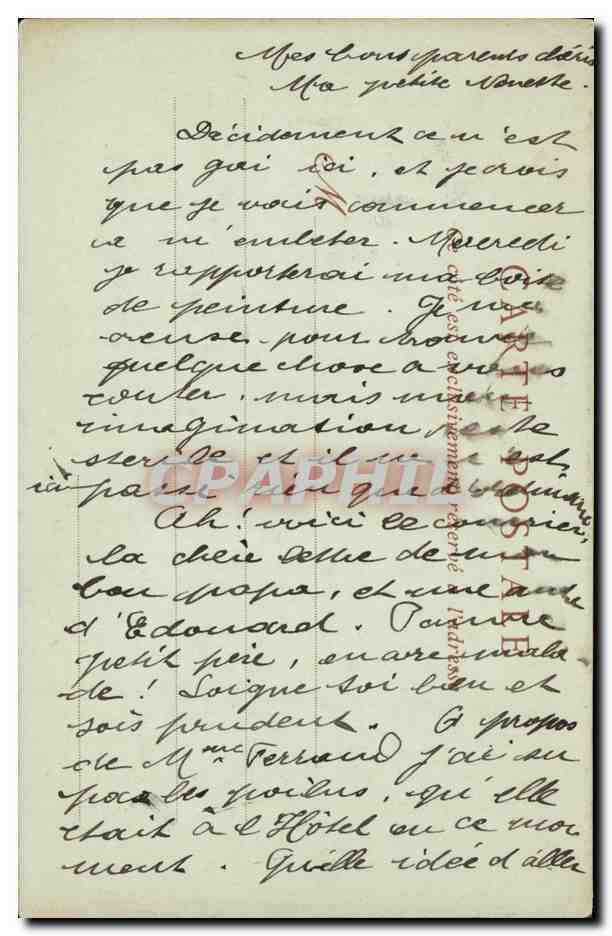 Mes bons parents chéris
Ma petite Nénette.
Décidement ce n'est
pas gai ici, et je crois
que je vais commencer
a m'embeter. Mercredi
je rapporterai ma boite
de peinture. Je me
creuse pour trouver
quelque chose a vous
conter, mais mon
imagination reste
sterile et il ne s'est
ici passé rien que d'ordinaire,
Ah! voici le courrier,
la chère lettre de mon
bon papa, et une autre
d'Edouard. Pauvre
petit père, encore mala
de! Soigne toi bien et
sois prudent. A propos
de Mme Ferraud j'ai su
par les poilus, qu'elle
était à l'Hôtel en ce mo
ment. Quelle idée d'aller
CARTE POSTALE
Ce côté est exclusivement réservé à l'adresse
M
CPAPHIL